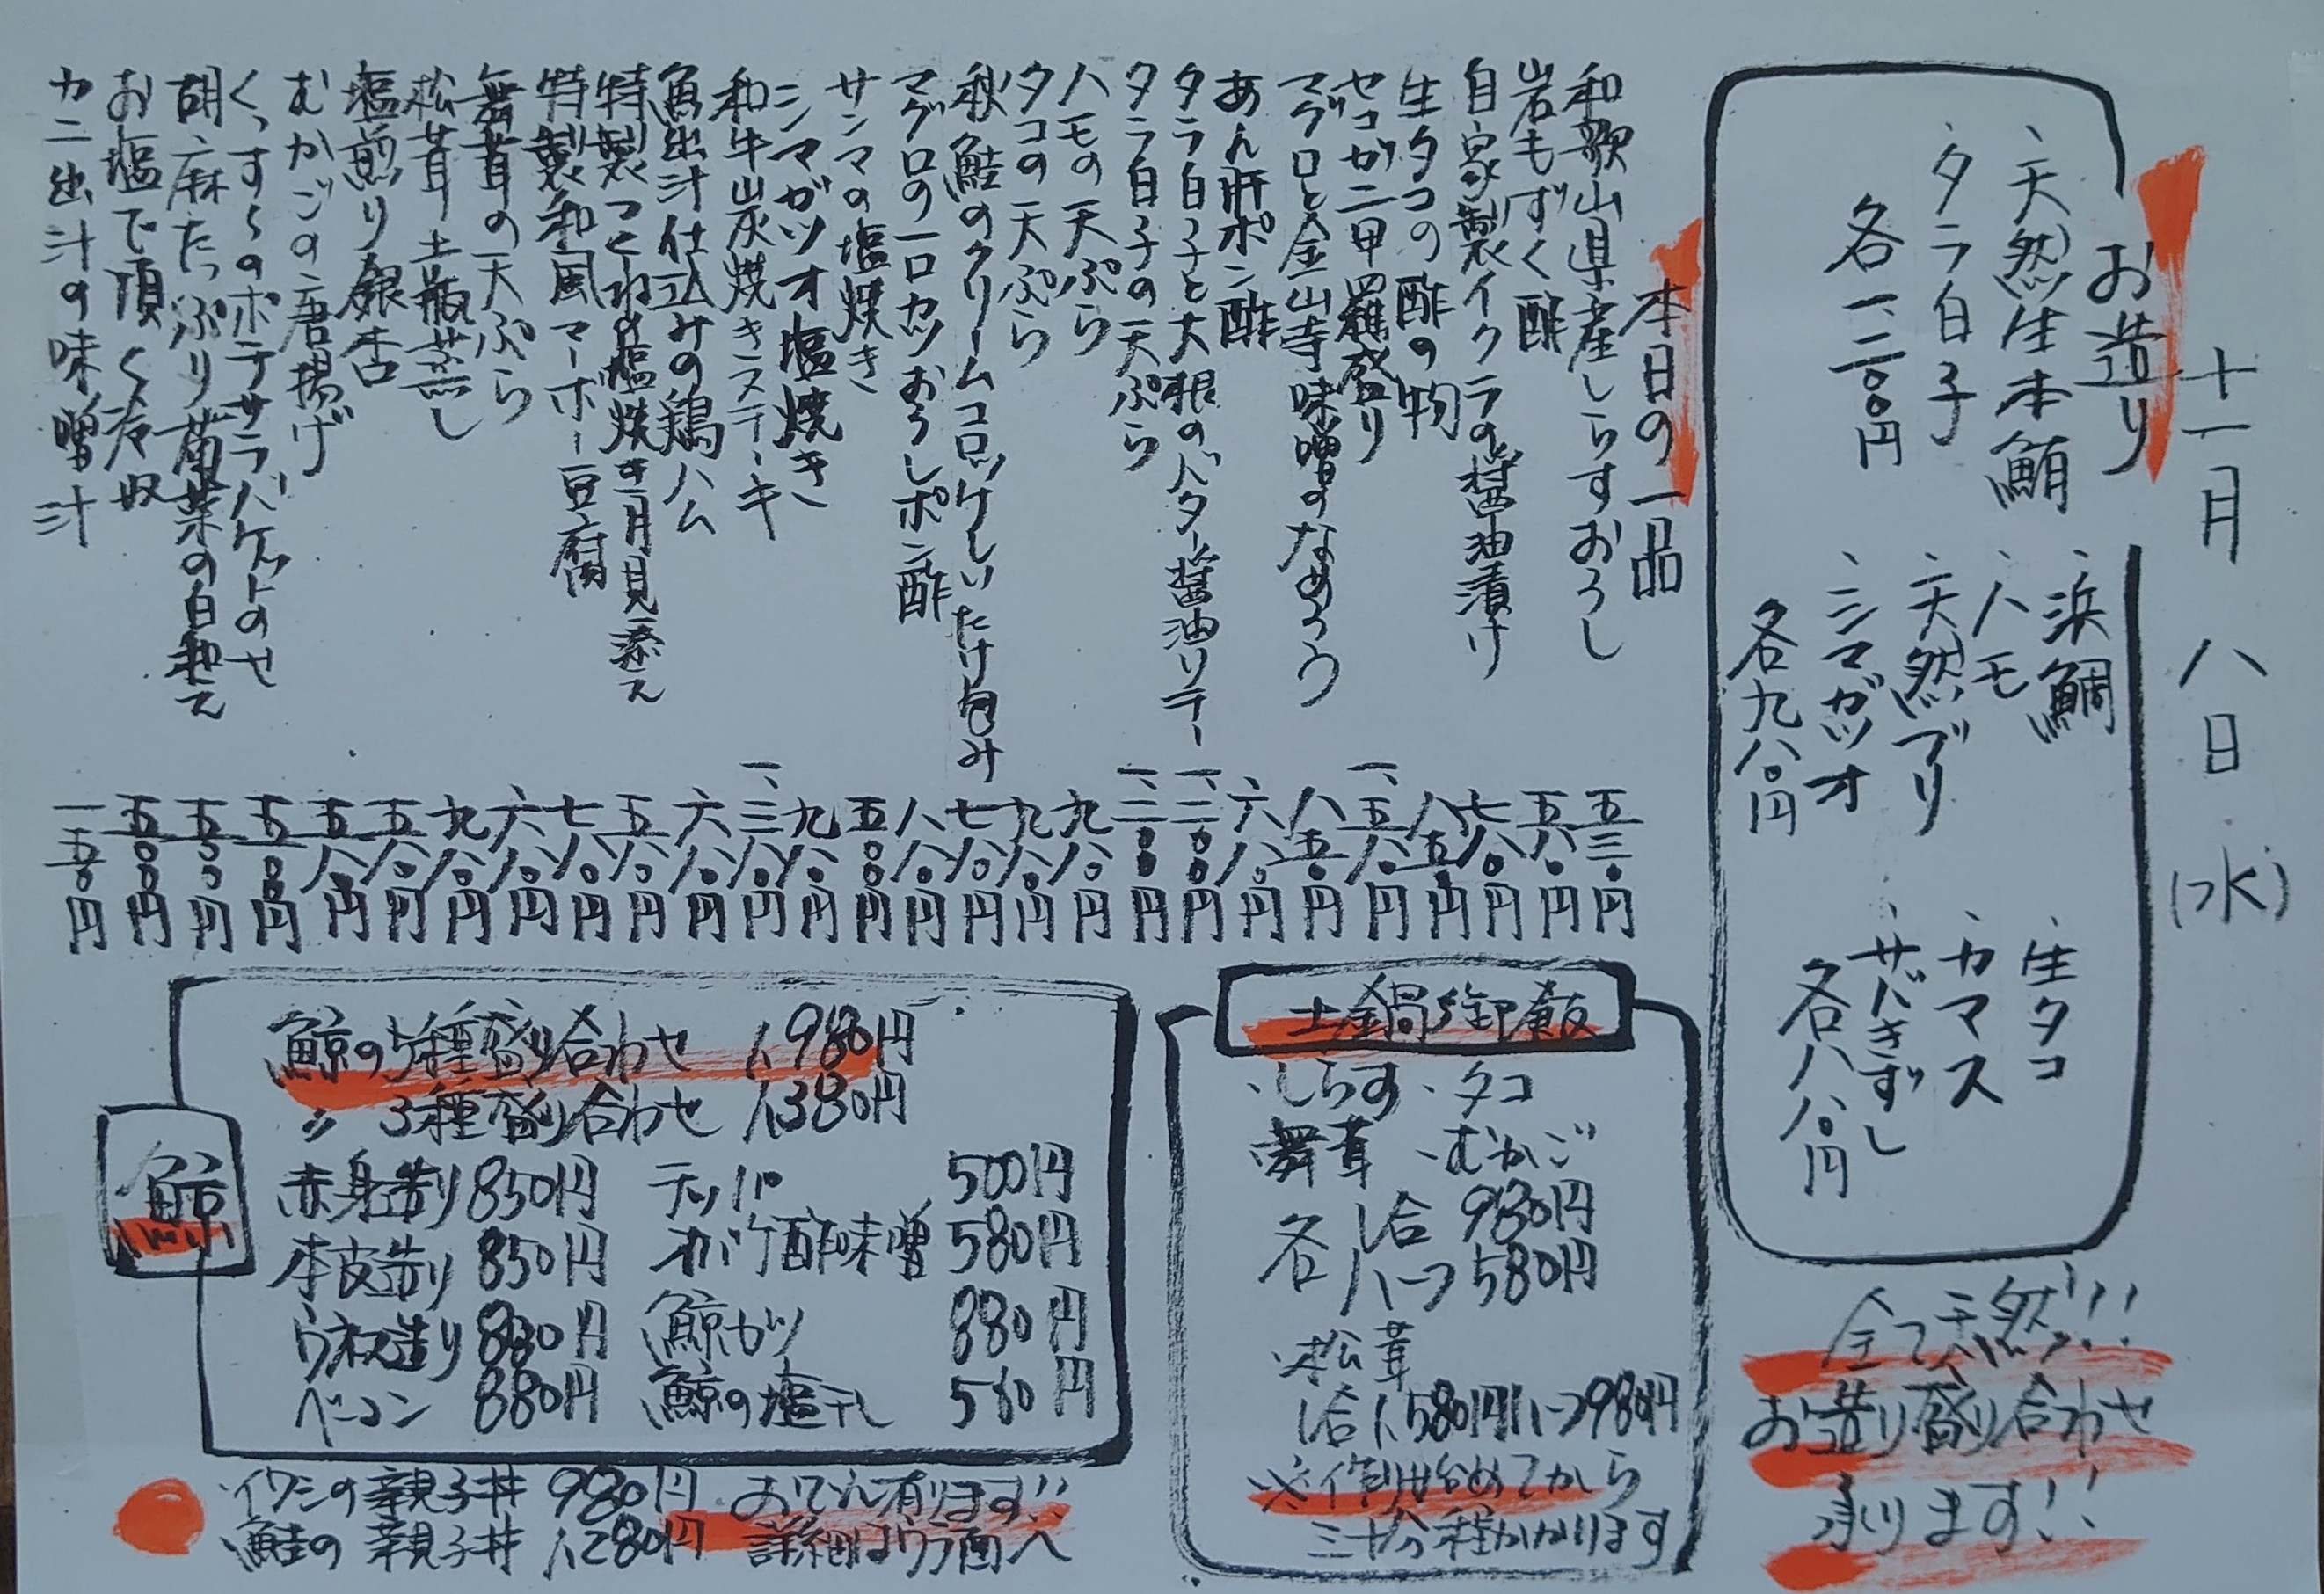 十一月八日(水)
お造り
、天然生本鮪
、タラ白子
各一、二〇〇円
、浜鯛
、ハモ
、天然ブリ
、シマガツオ
各九八〇円
、生タコ
、カマス
、サバきずし
各八八〇円
全て天然!!!
お造り盛り合わせ
承ります!!
本日の一品
和歌山県産しらすおろし 五三〇円
岩もずく酢 五八〇円
自家製イクラの醤油漬け 七八〇円
生タコの酢の物 八五〇円
セコガニ甲羅盛り 一、五八〇円
マグロと金山寺味噌のなめろう 八五〇円
あん肝ポン酢 六八〇円
タラ白子と大根のバター醤油ソテー 一、二〇〇円
タラ白子の天ぷら 一、二〇〇円
ハモの天ぷら 九八〇円
タコの天ぷら 九八〇円
秋鮭のクリームコロッケしいたけ包み 七八〇円
マグロの一口カツおろしポン酢 八八〇円
サンマの塩焼き 五〇〇円
シマガツオ塩焼き 九八〇円
和牛炭焼きステーキ 一、三八〇円
魚出汁仕込みの鶏ハム 六八〇円
特製つくね塩焼き月見添え 五八〇円
特製和風マーボー豆腐 七八〇円
舞茸の天ぷら 六八〇円
松茸土瓶蒸し 九八〇円
塩煎り銀杏 五八〇円
むかごの唐揚げ 五八〇円
くっすんのポテサラバケットのせ 五〇〇円
胡麻たっぷり菊菜の白和え 五五〇円
お塩で頂く冷奴 五〇〇円
カニ出汁の味噌汁 一五〇円
土鍋御飯
、しらす 、タコ
、舞茸 、むかご
各 1合 980円
各 ハーフ 580円
、松茸
1合1,580円ハーフ980円
※作り始めてから
三十分程かかります
鯨
鯨の5種盛り合わせ 1,980円
〃 3種盛り合わせ 1,380円
赤身造り 850円 テッパ 500円
本皮造り 850円 オバケ酢味噌 580円
ウネス造り 880円 鯨カツ 880円
ベーコン 880円 鯨の塩干し 560円
・イワシの親子丼 980円
・鮭の親子丼 1,280円
おでん有ります!!
詳細はウラ面へ